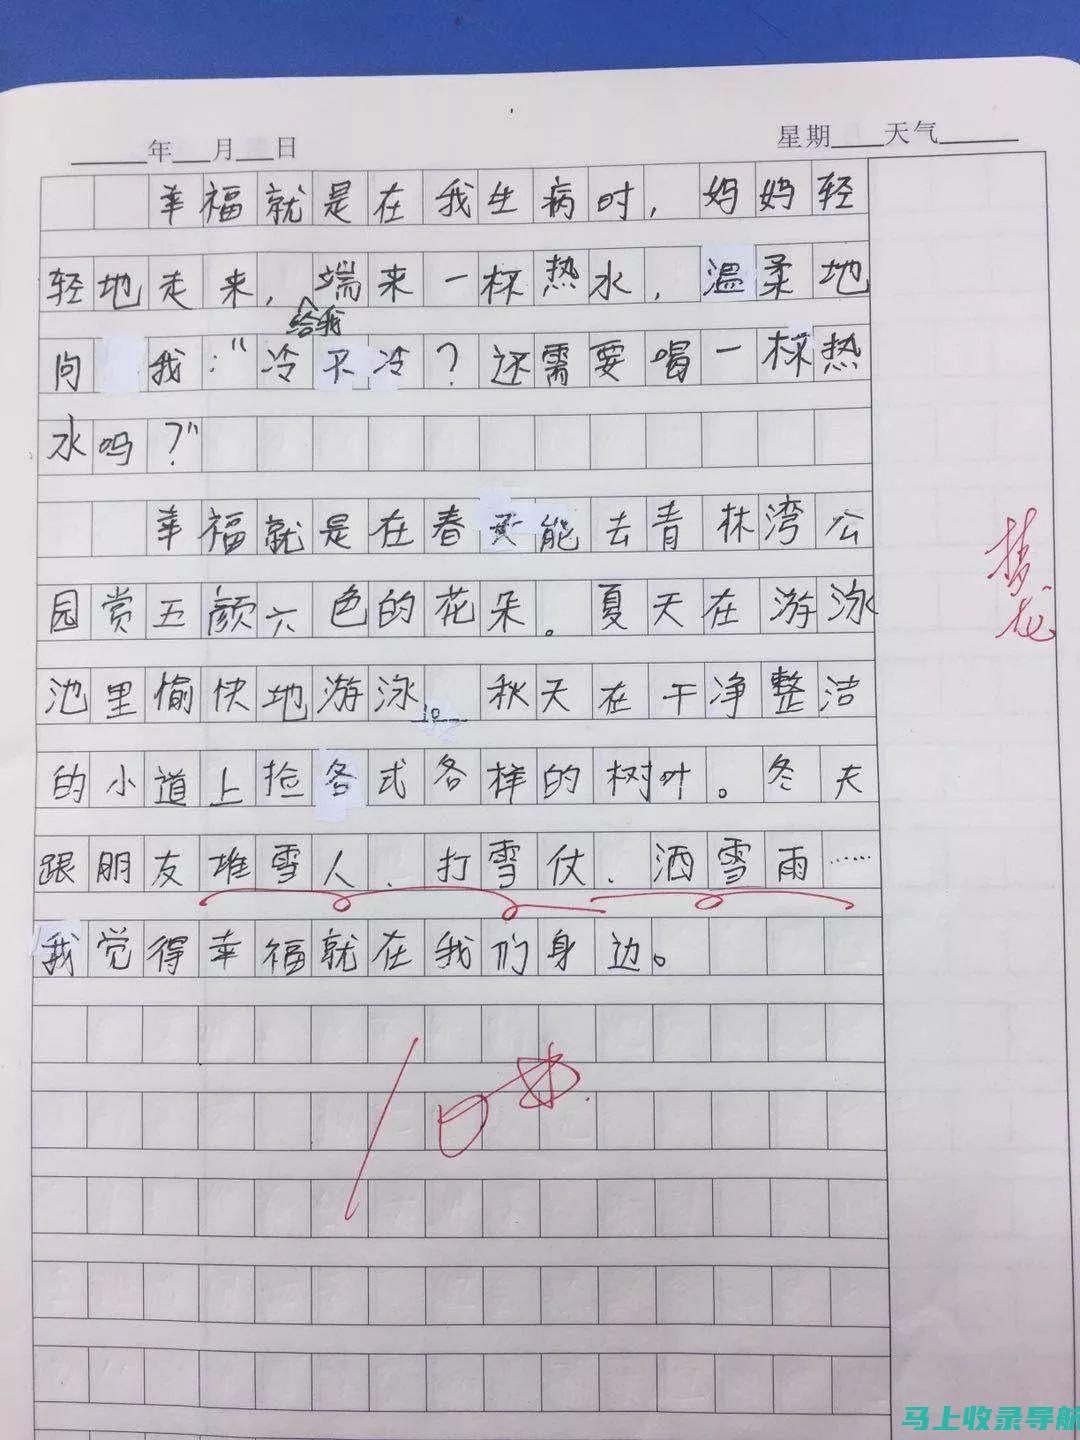 年 月 日 星期 天气
幸福就是在我生病时，妈妈轻
轻地走来，端来一杯热水，温柔地
给我
问我："冷不冷？还需要喝一杯热
水吗？"
幸福就是在春天能去青林湾公
园赏五颜六色的花朵。夏天在游泳
池里愉快地游泳。秋天在干净整洁
的小道上捡各式各样的树叶。冬天
跟朋友堆雪人、打雪仗、洒雪雨……
我觉得幸福就在我们身边。
马上收录导航